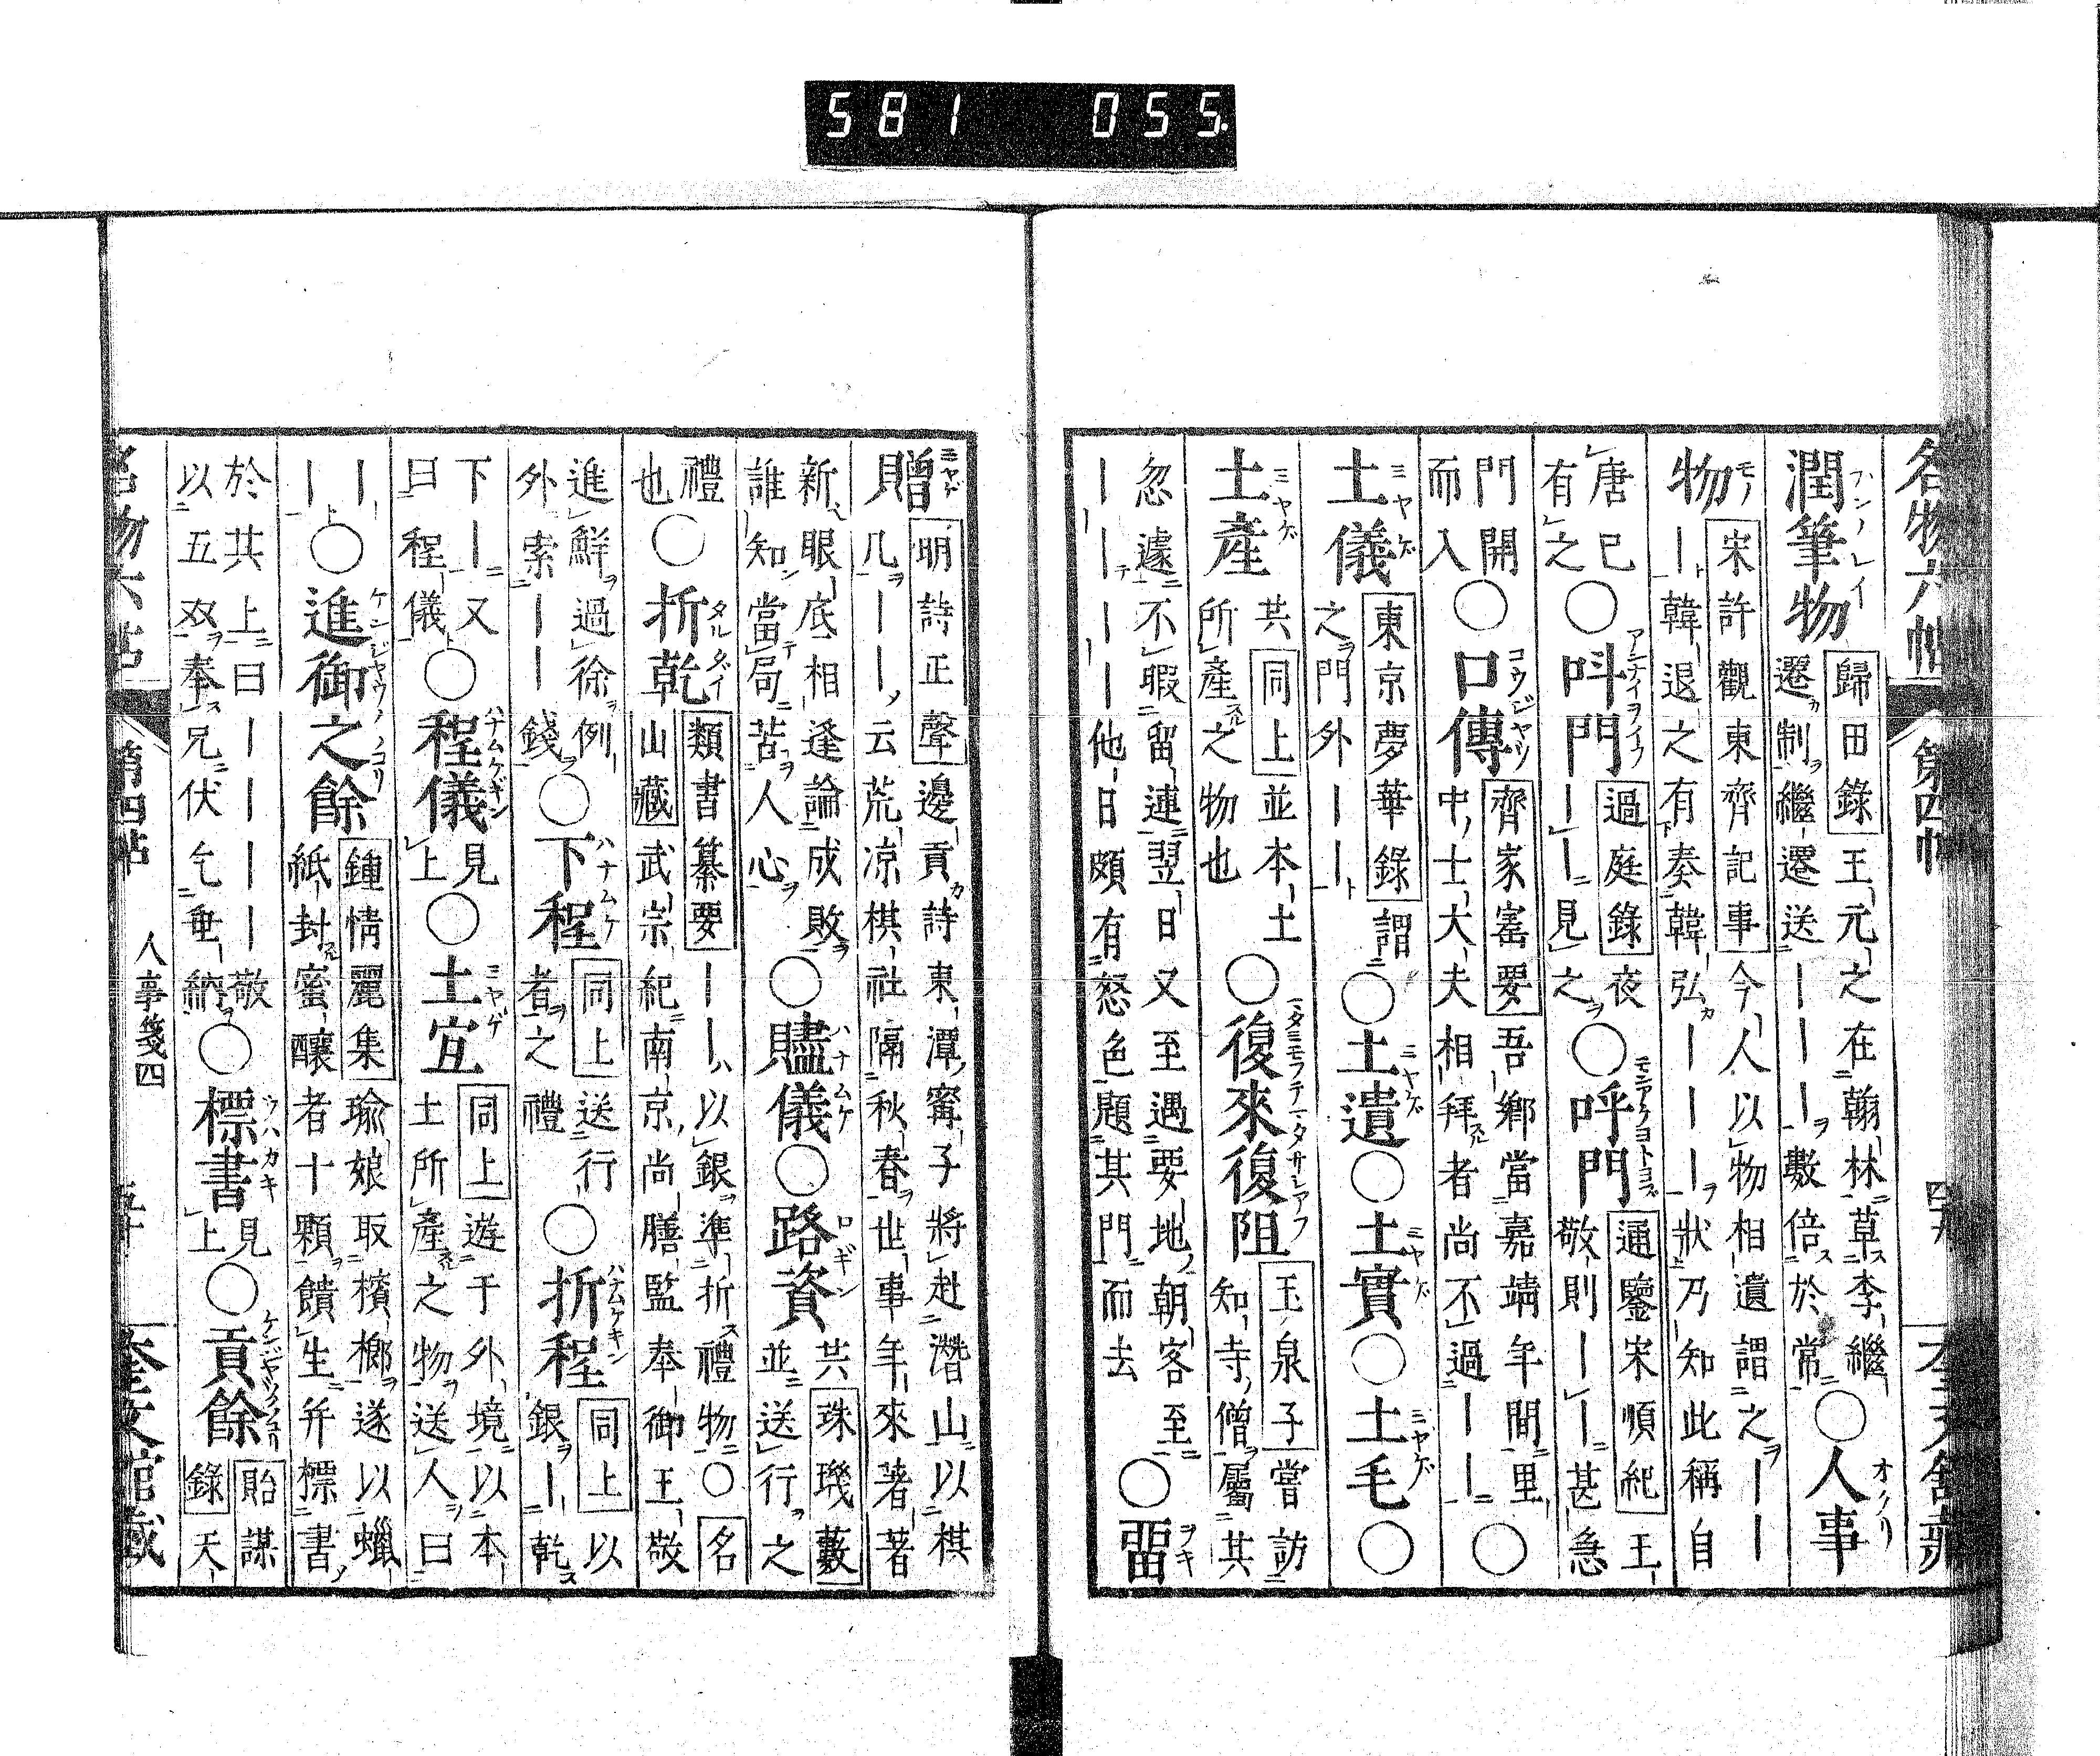 名物六帖　第四帖
潤筆物　歸田錄　王元之在翰林草李繼
遷制繼遷送｜｜｜數倍於常　○人事
物　宋許觀東齊記事　今人以物相遺謂之｜｜
｜韓退之有奏韓弘｜｜｜｜狀乃知此稱自
唐已
有之　○呌門　過庭錄　夜
｜｜見之　○呼門　通鑒宋順紀　王
敬則｜｜甚急
門開
而入　○口傳　齊家寶要　吾鄉當嘉靖年間里
中士大夫相拜者尚不過｜｜　○
土儀　東京夢華錄　謂
之門外｜｜　○土遺○土實○土毛○
土產　共同上並本土
所產之物也　○復來復阻　玉泉子　嘗訪
知寺僧屬其
忽遽不暇留連翌日又至遇要地朝客至
｜｜｜｜他日頗有怒色題其門而去　○畱
贈　明詩正聲　邊貢詩東潭甯子將赴濳山以棋
几｜｜云荒凉棋社隔秋春世事年來著著
新眼底相逢論成敗
誰知當局苦人心　○贐儀○路資　共珠璣藪
並送行之
禮
也　○折乾　類書纂要　｜｜以銀準折禮物○名
山藏　武宗紀南京尚膳監奉御王敬
進鮮過徐例
外索｜｜錢　○下程　同上　送行
者之禮　○折程　同上　以
銀｜乾
下｜又
曰程儀　○程儀　見
上　○土宜　同上　遊于外境以本
土所產之物送人曰
｜
｜　○進御之餘　鍾情麗集　瑜娘取檳榔遂以蠟
紙封蜜釀者十顆饋生并標書
於其上曰｜｜｜｜敬
以五双奉兄伏乞垂納　○標書　見
上　○貢餘　貽謀
錄　天
名物六帖　第四帖　人事箋四　五十　奎文館藏